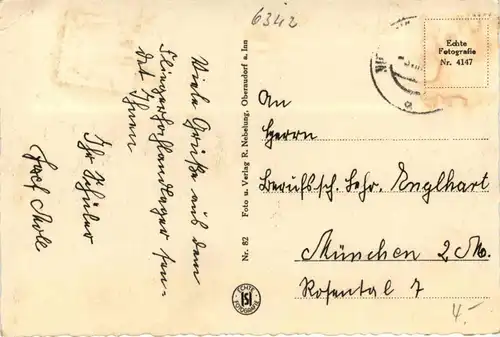 6342
Echte
Fotografie
Nr. 4147
Viele Grüße aus dem
Fliegerhochlandlager sen-
det Ihnen
Ihr Schüler
Josef Moll
Nr. 82 Foto u. Verlag R. Nebelung, Oberaudorf a. Inn
ECHTE
ISI
FOTOGRAFIE
An
Herrn
Berufssch. Lehr. Englhart
München 2 M.
Rosental 7
4.-